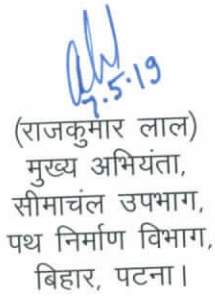 7.5.19
(राजकुमार लाल)
मुख्य अभियंता,
सीमाचंल उपभाग,
पथ निर्माण विभाग,
बिहार, पटना।